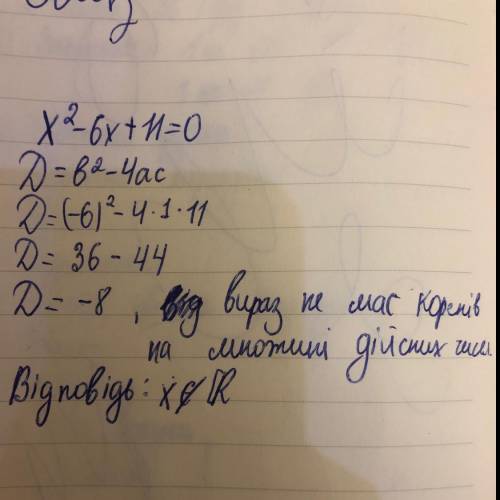 x²-6x+11=0
D=в²-4ac
D=(-6)²-4·1·11
D= 36-44
D= -8 , вираз не має коренів
на множині дійсних чисел
Відповідь: x∉ℝ